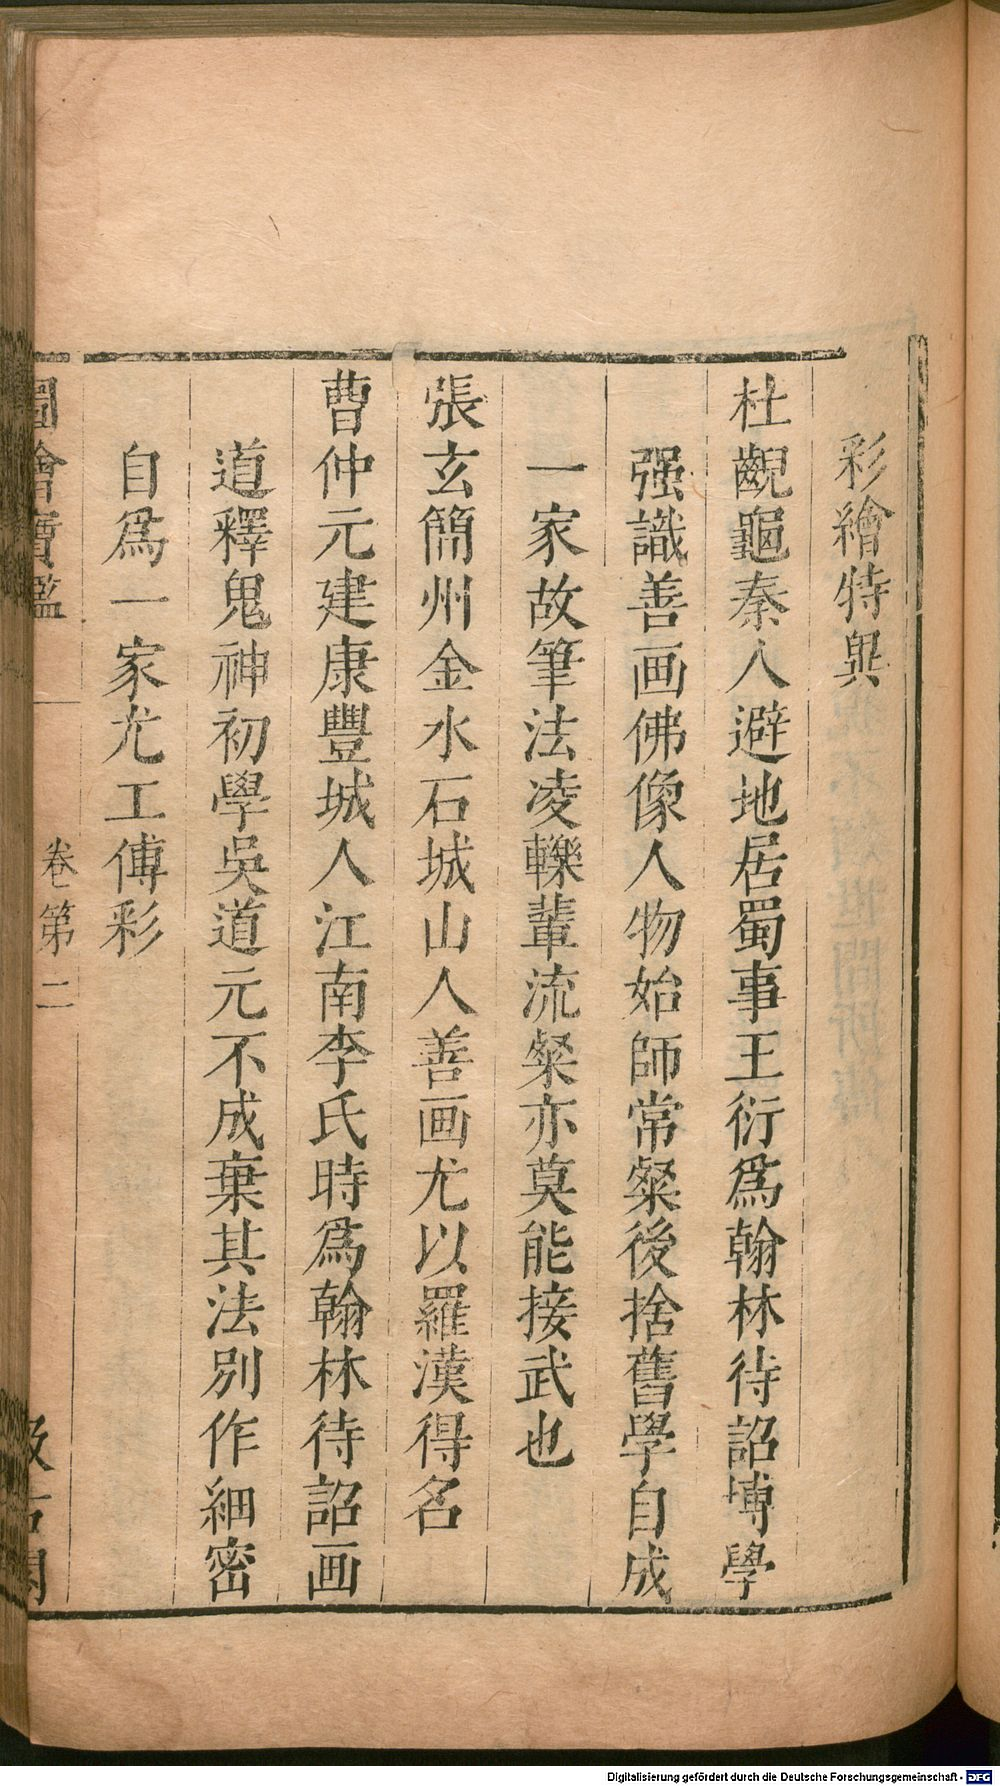 彩繪特異
杜齯龜秦人避地居蜀事王衍爲翰林待詔博學
强識善画佛像人物始師常粲後捨舊學自成
一家故筆法凌轢輩流粲亦莫能接武也
張玄簡州金水石城山人善画尤以羅漢得名
曹仲元建康豐城人江南李氏時爲翰林待詔画
道釋鬼神初學吳道元不成棄其法別作細密
自爲一家尤工傅彩
圖繪寶鑑 卷第二 汲古閣
Digitalisierung gefördert durch die Deutsche Forschungsgemeinschaft - DFG